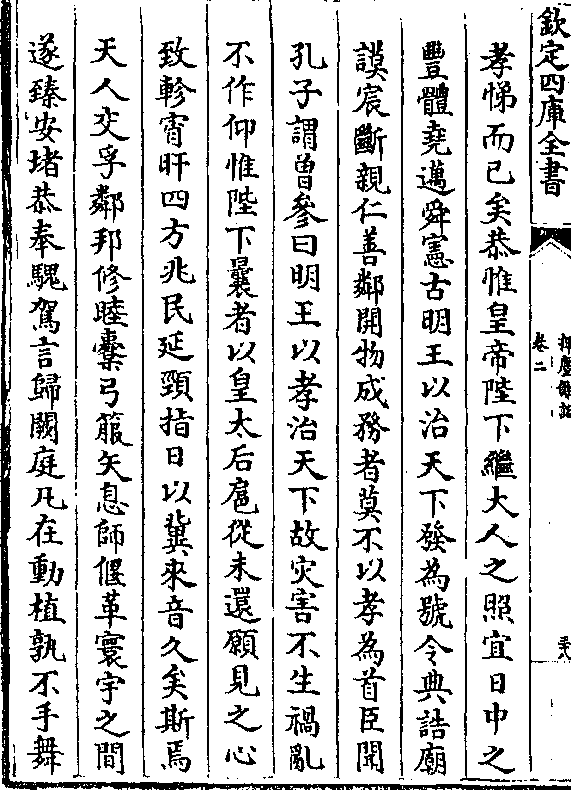 欽定四庫全書
卷二
孝悌而已矣恭惟皇帝陛下繼大人之照宜日中之
豐體堯邁舜憲古明王以治天下發為號令典誥廟
謨宸斷親仁善鄰開物成務者莫不以孝為首臣聞
孔子謂曾參曰明王以孝治天下故灾害不生禍亂
不作仰惟陛下曩者以皇太后扈從未還願見之心
致軫宵旰四方兆民延頸指日以冀來音久矣斯焉
天人交孚鄰邦修睦櫜弓箙矢息師偃革寰宇之間
遂臻安堵恭奉騩駕言歸闕庭凡在動植孰不手舞